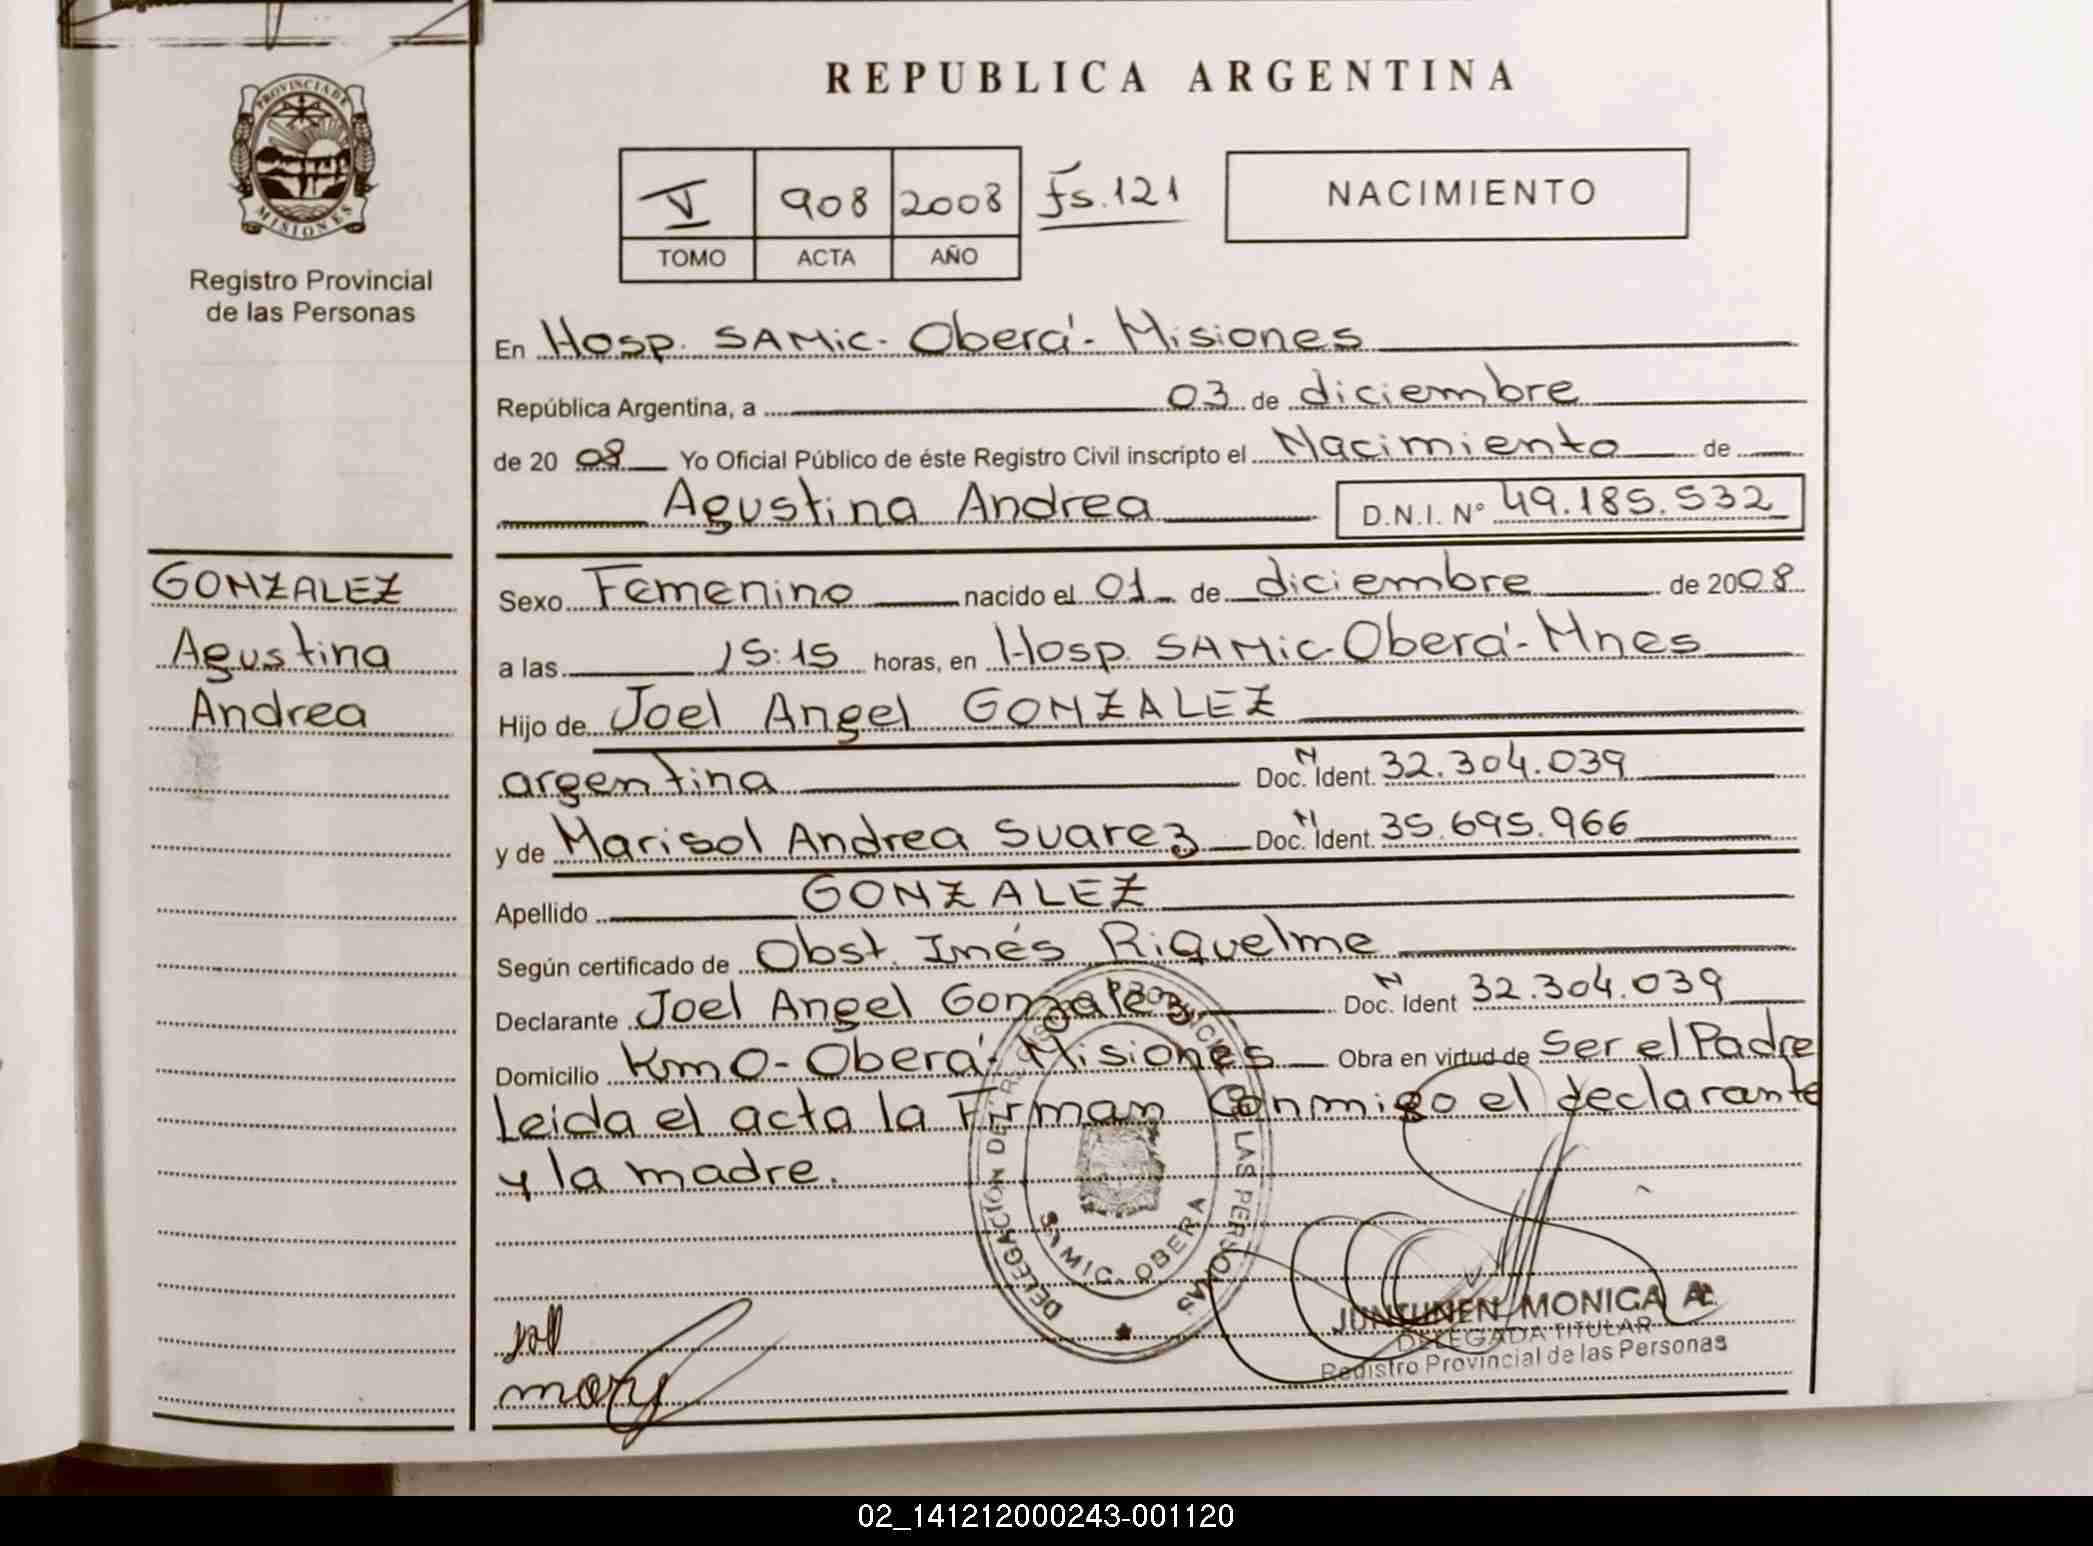 REPUBLICA ARGENTINA
PROVINCIA DE MISIONES
Registro Provincial
de las Personas
V 908 2008 Fs. 121
TOMO ACTA AÑO
NACIMIENTO
En Hosp. SAMic - Oberá - Misiones
República Argentina, a 03 de diciembre
de 20 08 Yo Oficial Público de éste Registro Civil inscripto el Nacimiento de
Agustina Andrea D.N.I. N° 49.185.532
GONZALEZ
Agustina
Andrea
Sexo Femenino nacido el 01 de diciembre de 2008
a las 15:15 horas, en Hosp. SAMic - Oberá - Mnes
Hijo de Joel Angel GONZALEZ
argentina Doc. N Ident. 32.304.039
y de Marisol Andrea Suarez Doc. N Ident. 35.695.966
Apellido GONZALEZ
Según certificado de Obst. Inés Riquelme
Declarante Joel Angel Gonzalez Doc. N Ident 32.304.039
Domicilio Km 0 - Oberá - Misiones Obra en virtud de Ser el Padre
Leida el acta la Firman Conmigo el declarante
y la madre.
DELEGACIÓN DEL REGISTRO PROVINCIAL DE LAS PERSONAS
SAMIC - OBERA
JUNTUNEN MONICA A.
DELEGADA TITULAR
Registro Provincial de las Personas
02_141212000243-001120